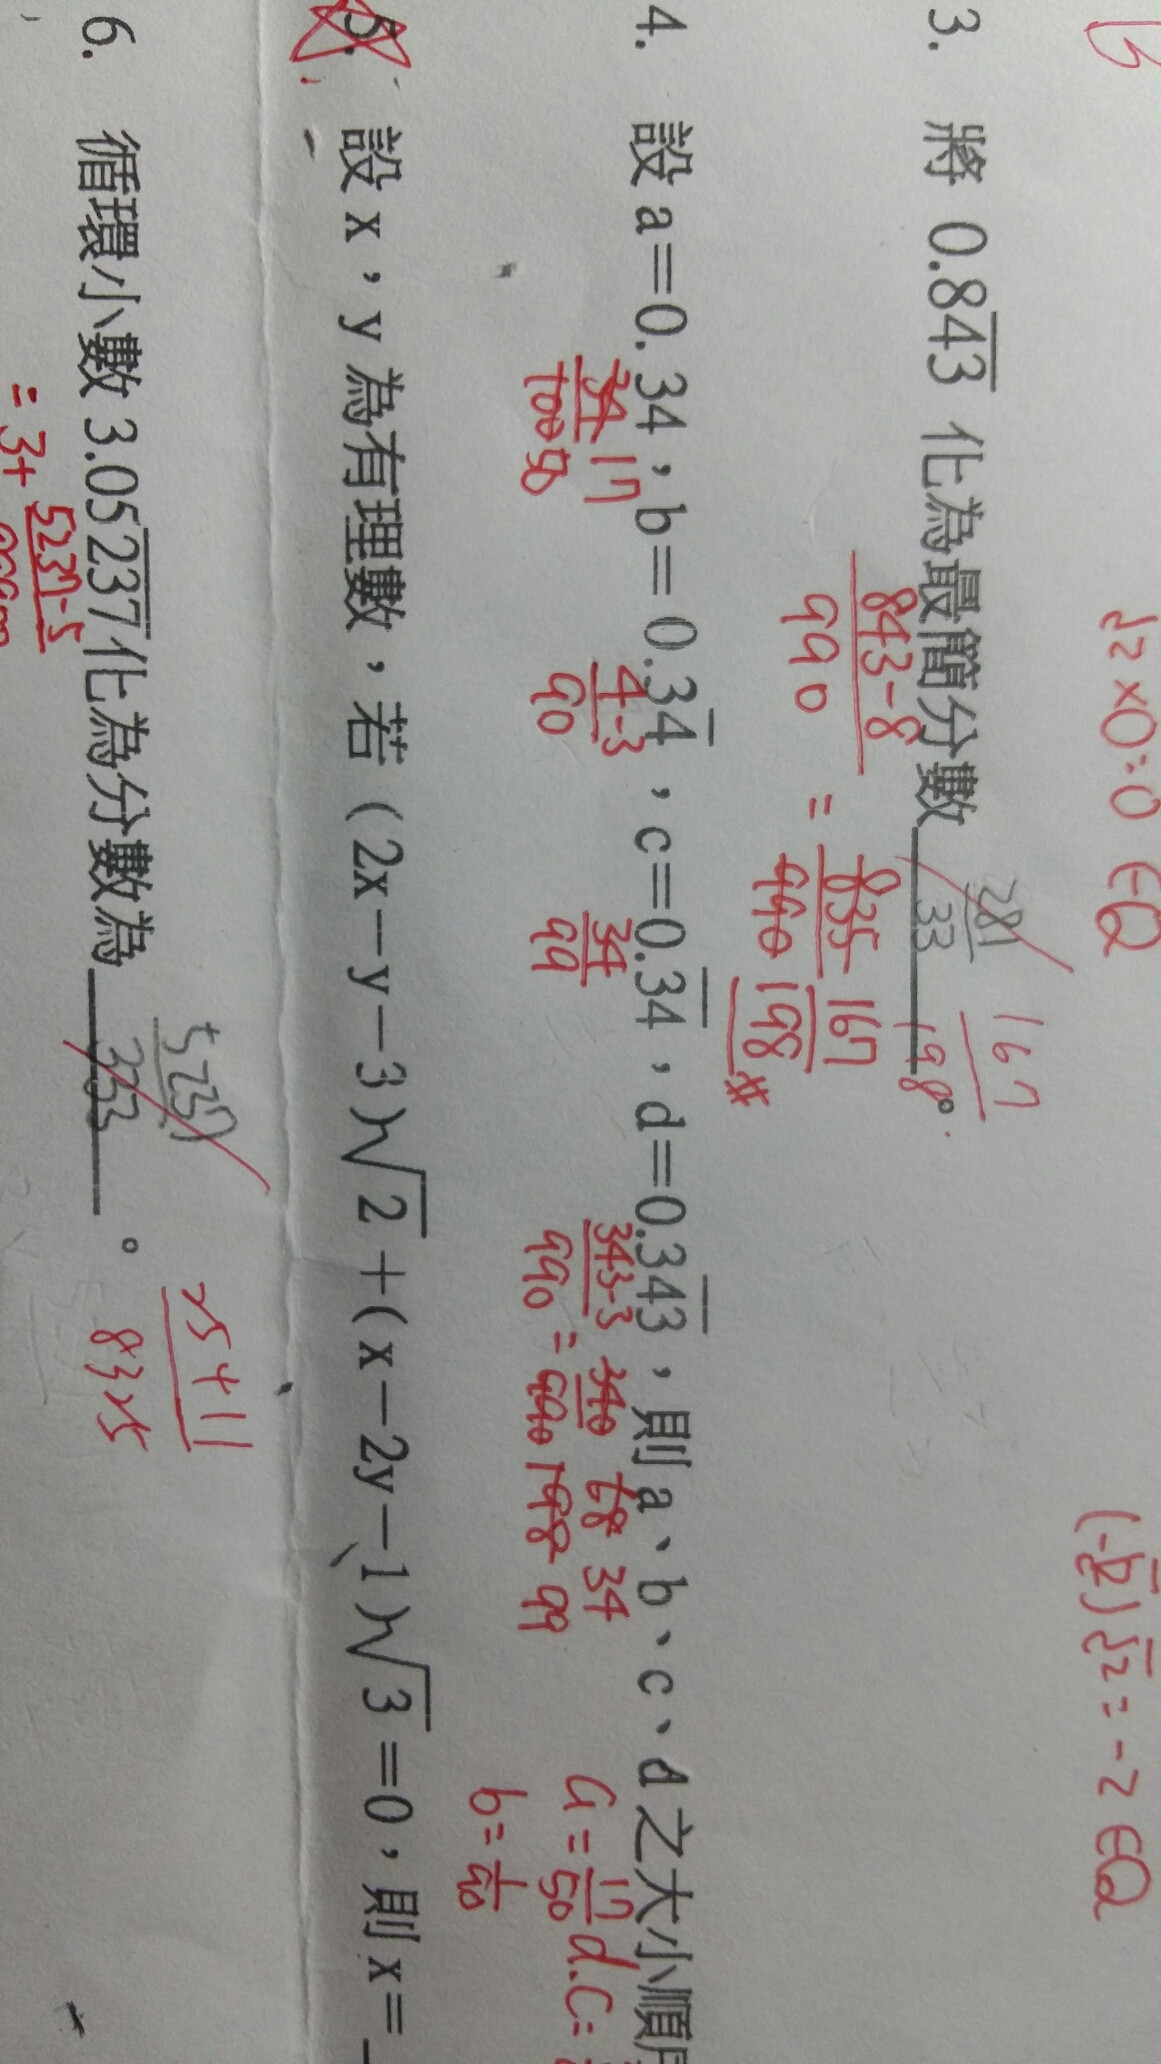 √2×0=0 ∈Q
(-√2)√2=-2 ∈Q
3. 將 0.843 化為最簡分數 281/33 167/198 。
843-8/990 = 835/990 167/198 #
4. 設 a=0.34，b=0.34，c=0.34，d=0.343，則 a、b、c、d 之大小順
34/100 17/50 4-3/90 34/99 343-3/990 = 340/990 68/198 34/99
a=17/50 d.c=
b=1/90
5. 設 x，y 為有理數，若 (2x-y-3)√2+(x-2y-1)√3=0，則 x=
6. 循環小數 3.05237化為分數為 5237/333 。 25411/8325
=3+ 5237-5